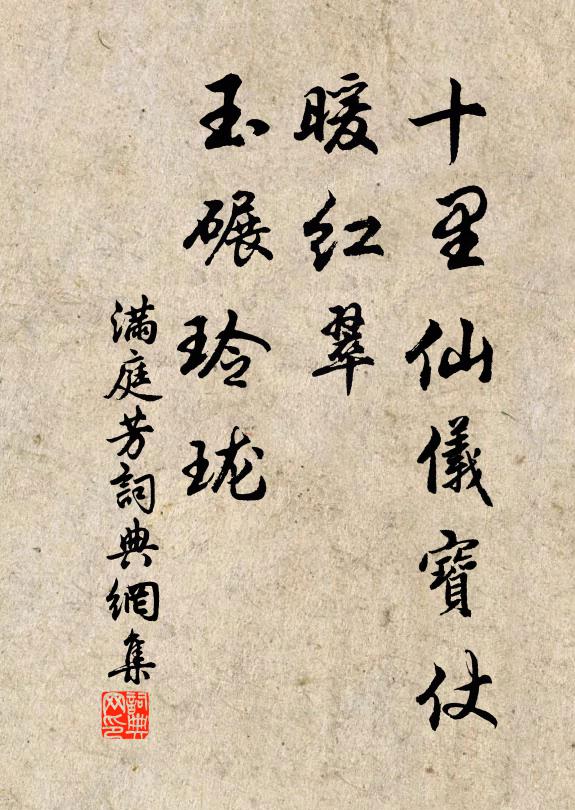 十里仙儀寶仗
暖紅翠
玉碾玲珑
滿庭芳詞典網集
詞典
网印